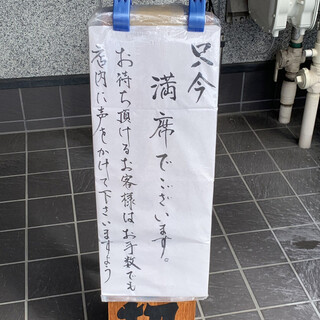 只今
満席でございます。
お待ち頂けるお客様はお手数でも
店内に声をかけて下さいますよう